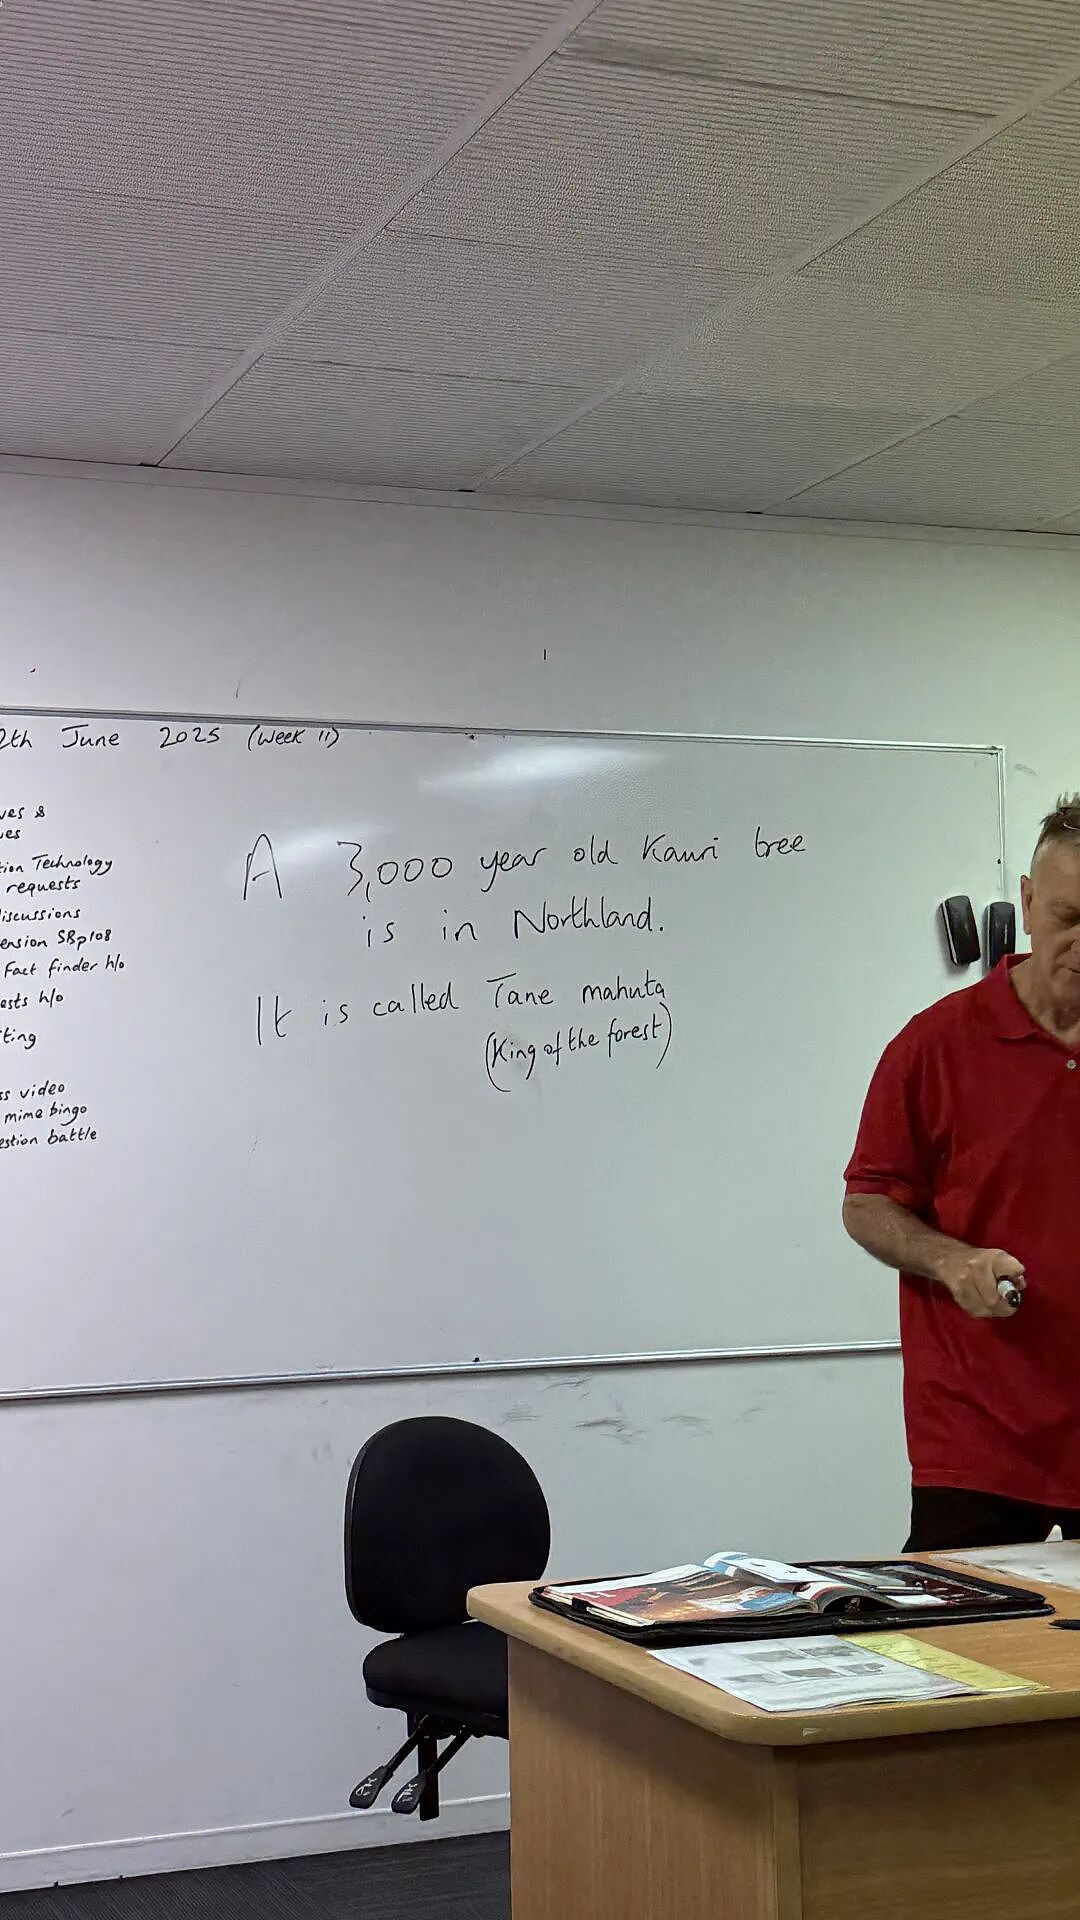 2th June 2025 (Week 11)
ves &
ves
tion Technology
requests
iscussions
ension SBp108
Fact finder h/o
ests h/o
ting
ss video
mime bingo
estion battle
A 3,000 year old Kauri tree
is in Northland.
It is called Tane mahuta
(King of the forest)